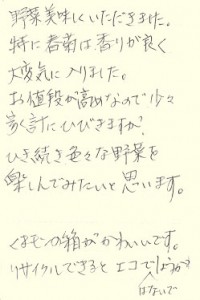 野菜美味しくいただきました。
特に春菊は香りが良く
大変気に入りました。
お値段が高めなので少々
家計にひびきますが、
ひき続き色々な野菜を
楽しんでみたいと思います。
くまモンの箱がかわいいです。
リサイクルできるとエコでしょうか
はないで